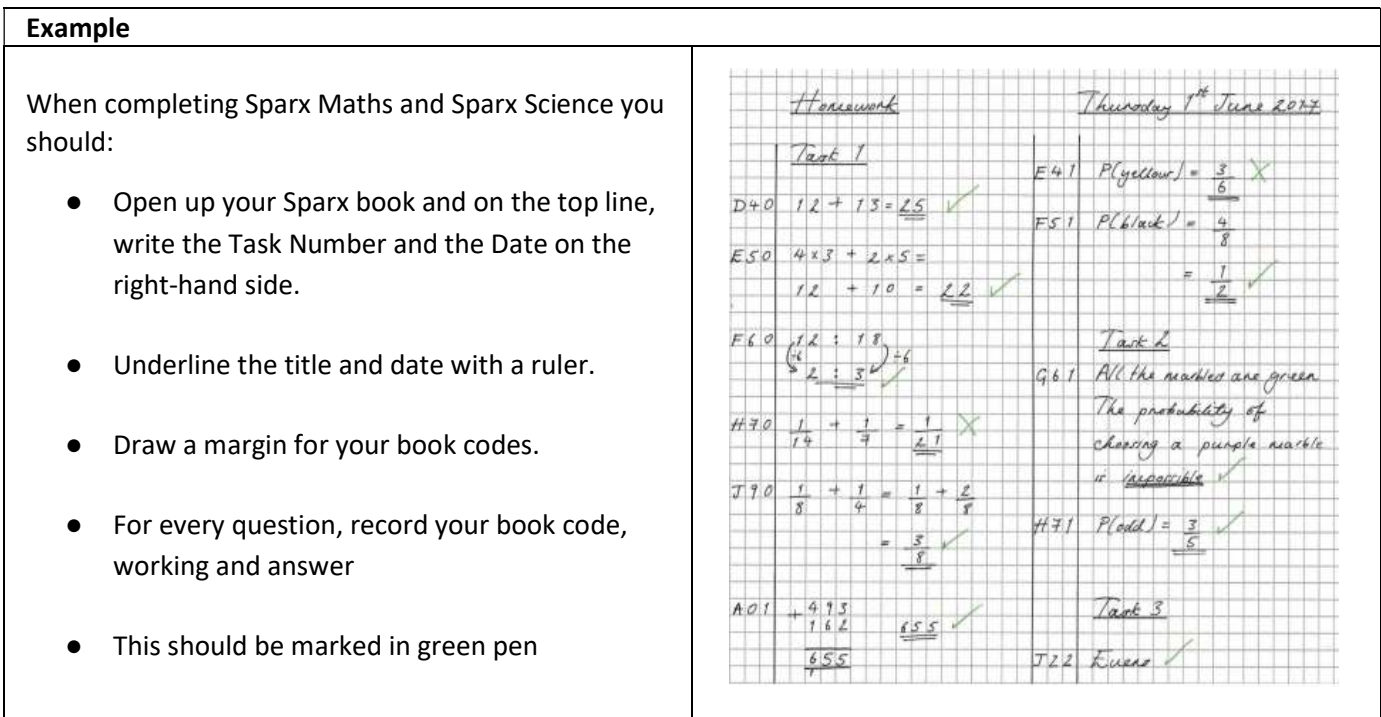 Example
When completing Sparx Maths and Sparx Science you
should:
● Open up your Sparx book and on the top line,
write the Task Number and the Date on the
right-hand side.
● Underline the title and date with a ruler.
● Draw a margin for your book codes.
● For every question, record your book code,
working and answer
● This should be marked in green pen
Homework
Thursday 1st June 2017
Task 1
D40 12 + 13 = 25 ✓
E50 4 x 3 + 2 x 5 =
12 + 10 = 22 ✓
F60 12 : 18
÷6 ÷6
2 : 3 ✓
H70 1/14 + 1/7 = 1/21 X
J90 1/8 + 1/4 = 1/8 + 2/8
= 3/8 ✓
A01 + 493
162 655 ✓
655
1
E41 P(yellow) = 3/6 X
F51 P(black) = 4/8
= 1/2 ✓
Task 2
G61 All the marbles are green
The probability of
choosing a purple marble
is impossible ✓
H71 P(odd) = 3/5 ✓
Task 3
J22 Evens ✓